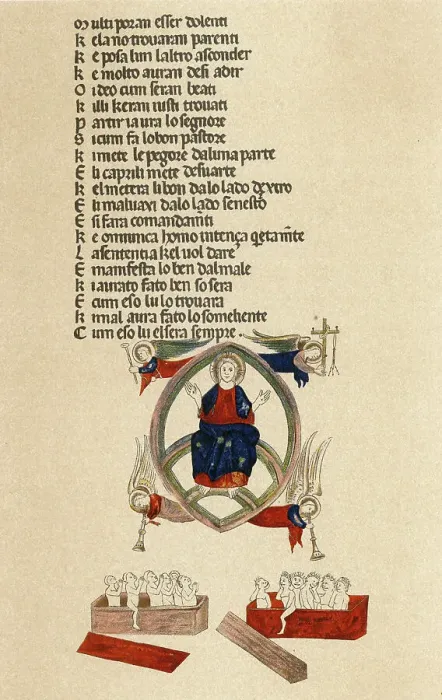 Multi poran esser dolenti
K ela no trouaran parenti
K e posa lun laltro asconder
K e molto auran desi a dir
O i deo cum seran beati
K illi keran iusti trouati
P artir iaura lo segnore
S icum fa lo bon pastore
K i mete le pegore da luna parte
E li caprili mete desuarte
K el metera li bon da lo lado dextro
E li maluaxi da lo lado senestro
E si fara comandam̃ti
K e omiunca homo intença q̃etam̃te
L a sententia kel uol dare
E manifesta lo ben dal male
K i aurato fato ben so sera
E cum eso lu lo trouara
K i mal aura fato lo somehente
C um eso lu el sera sempre.